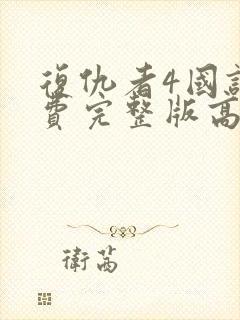 復仇者4國
費完整版高
衛茜